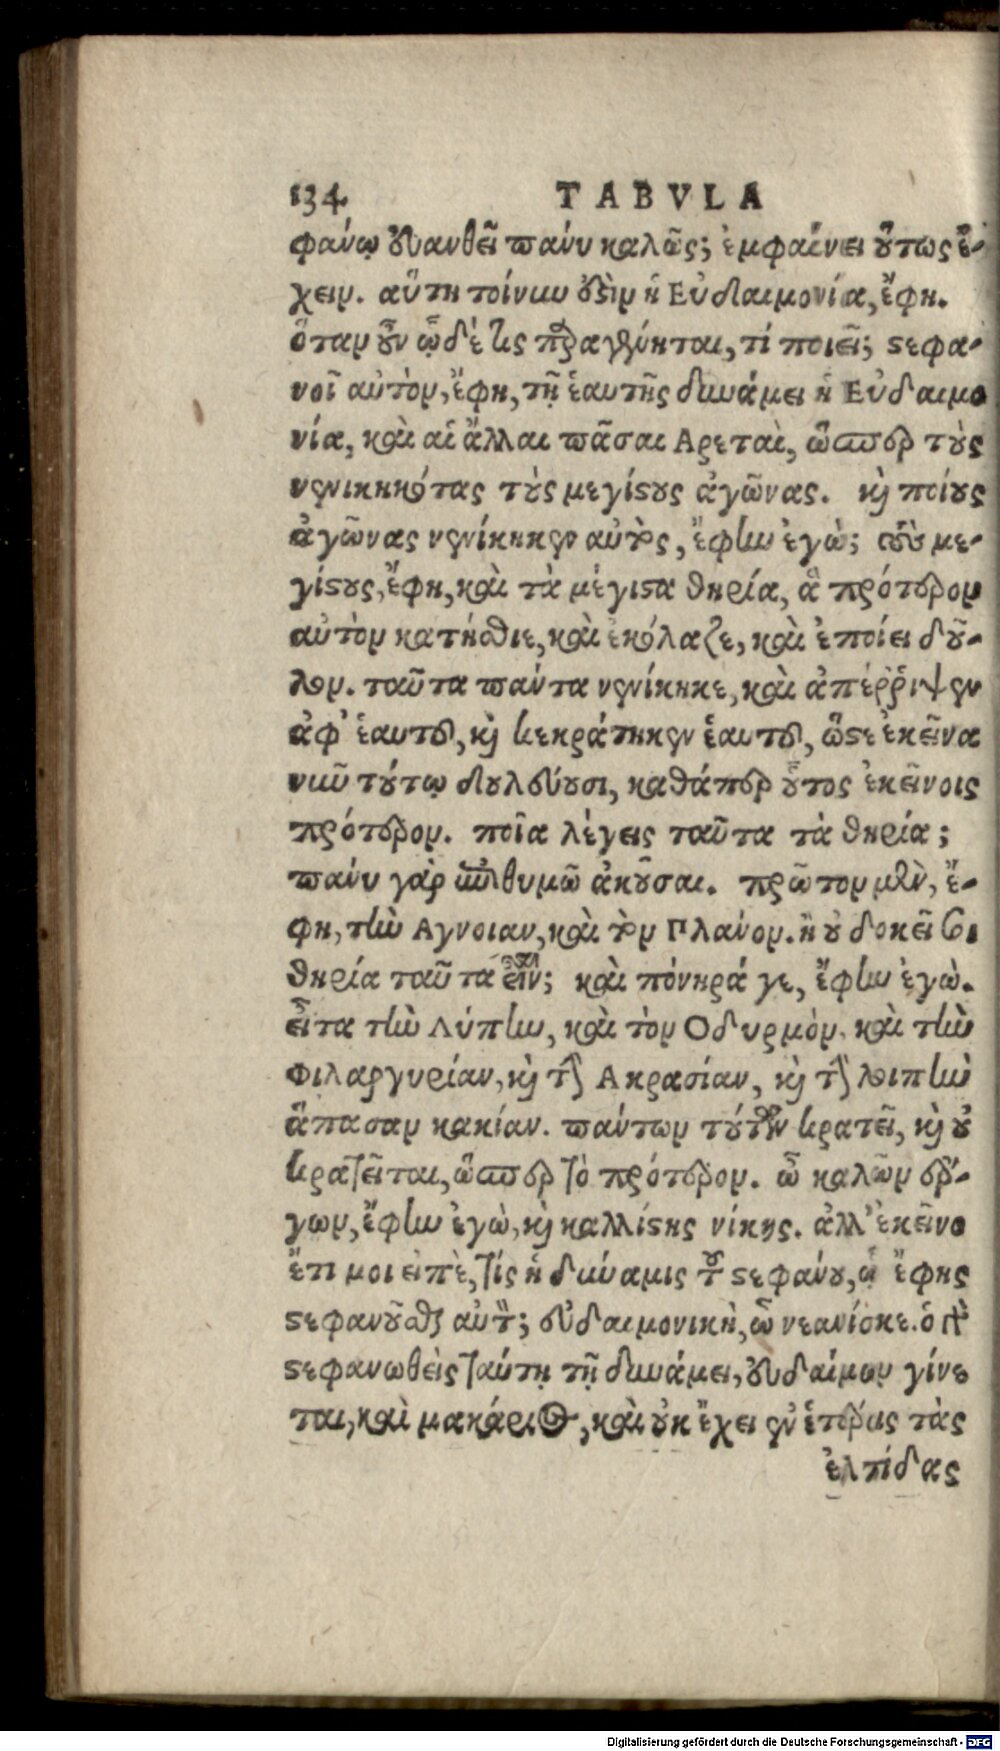 134 TABVLA
φάνῳ εὐανθεῖ πάνυ καλῶς; ἐμφαίνει οὕτως ἔ-
χειν. αὕτη τοίνυν ὅστιν ἡ Εὐδαιμονία, ἔφη.
ὅταν οὖν ὧδέ τις παραγένηται, τί ποιεῖ; στεφα-
νοῖ αὐτὸν, ἔφη, τῇ ἑαυτῆς δυνάμει ἡ Εὐδαιμο
νία, καὶ αἱ ἄλλαι πᾶσαι Αρεταὶ, ὥσπερ τοὺς
νενικηκότας τοὺς μεγίστους ἀγῶνας. καὶ ποίους
ἀγῶνας νενίκηκεν αὐτὸς, ἔφην ἐγὼ; τοὺς με-
γίστους, ἔφη, καὶ τὰ μέγιστα θηρία, ἃ πρότερον
αὐτὸν κατήσθιε, καὶ ἐκόλαζε, καὶ ἐποίει δοῦ-
λον. ταῦτα πάντα νενίκηκε, καὶ ἀπέῤῥιψεν
ἀφ' ἑαυτοῦ, καὶ κεκράτηκεν ἑαυτοῦ, ὥστε ἐκεῖνα
νῦν τούτῳ δουλεύουσι, καθάπερ οὗτος ἐκείνοις
πρότερον. ποῖα λέγεις ταῦτα τὰ θηρία;
πάνυ γὰρ ἐπιθυμῶ ἀκοῦσαι. πρῶτον μὲν, ἔ-
φη, τὴν Αγνοιαν, καὶ τὸν Πλάνον. ἢ οὐ δοκεῖ σοι
θηρία ταῦτα εἶναι; καὶ πόνηρά γε, ἔφην ἐγὼ.
εἶτα τὴν Λύπην, καὶ τὸν Οδυρμὸν, καὶ τὴν
Φιλαργυρίαν, καὶ τὴν Ακρασίαν, καὶ τὴν λοιπὴν
ἅπασαν κακίαν. πάντων τούτων κρατεῖ, καὶ οὐ
κρατεῖται, ὥσπερ τὸ πρότερον. ὦ καλῶν ἔρ-
γων, ἔφην ἐγὼ, καὶ καλλίστης νίκης. ἀλλ' ἐκεῖνο
ἔτι μοι εἰπὲ, τίς ἡ δύναμις τοῦ στεφάνου, ᾧ ἔφης
στεφανοῦσθαι αὐτὸν; εὐδαιμονικὴ, ὦ νεανίσκε. ὁ γὰρ
στεφανωθεὶς ταύτῃ τῇ δυνάμει, εὐδαίμων γίνε
ται, καὶ μακάριος, καὶ οὐκ ἔχει ἐν ἑτέροις τὰς
ἐλπίδας
Digitalisierung gefördert durch die Deutsche Forschungsgemeinschaft - DFG